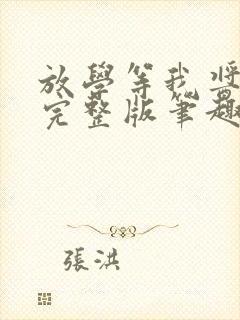 放學等我將
完整版筆趣
張洪